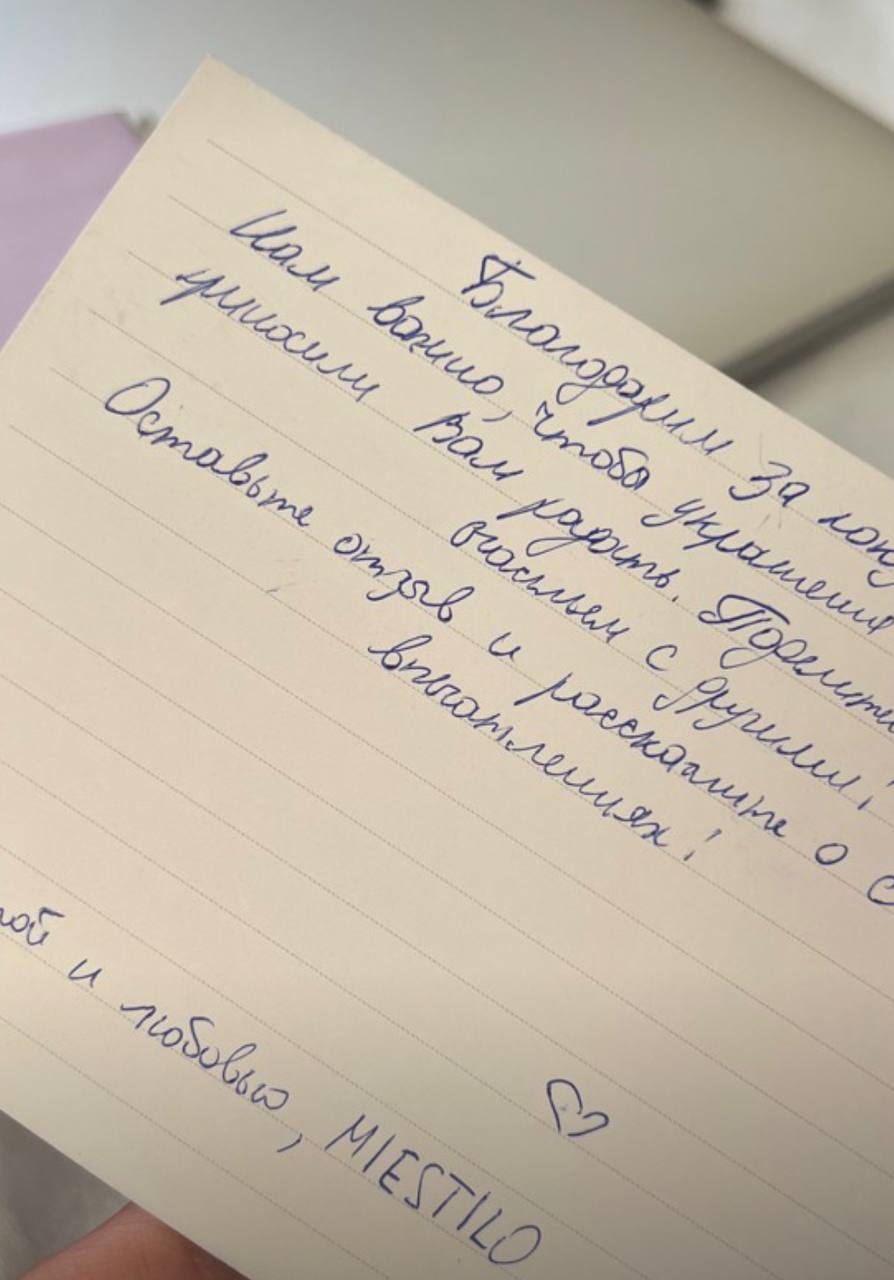 Благодарим за поку
Нам важно, чтобы украшения
приносили Вам радость. Поделити
счастьем с другими!
Оставьте отзыв и расскажите о с
впечатлениях!
той и любовью, MIESTILO